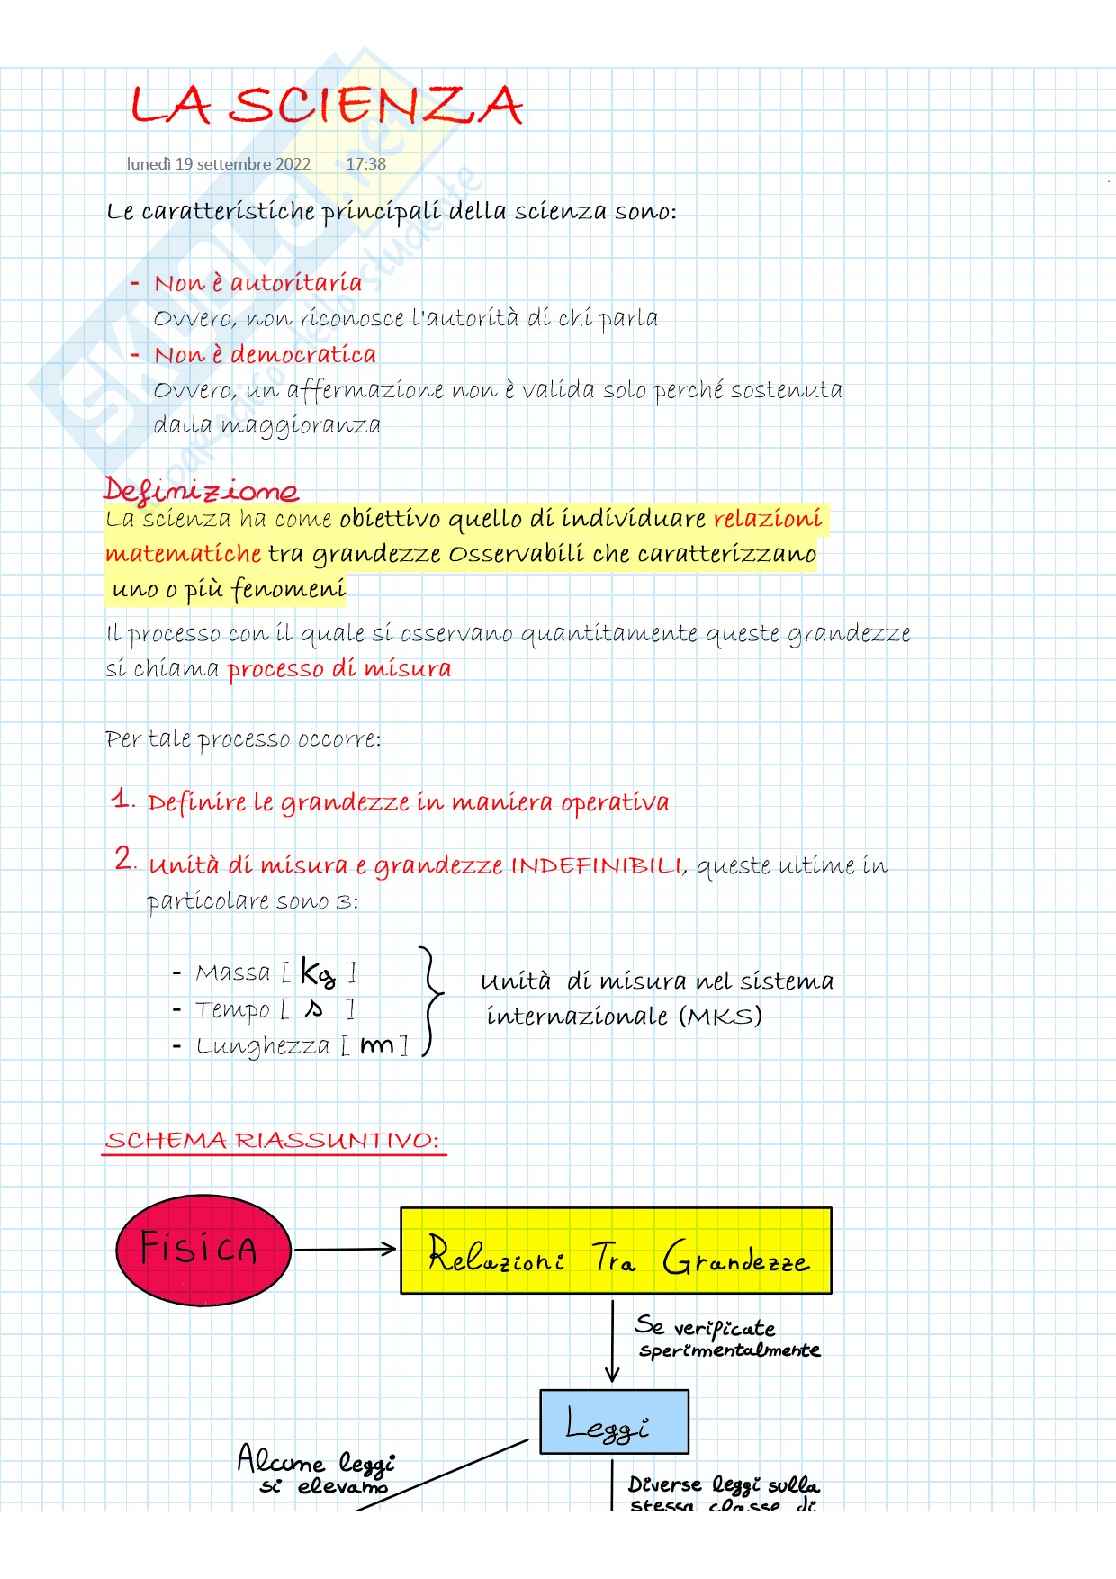 LA SCIENZA
lunedì 19 settembre 2022 17:38
Le caratteristiche principali della scienza sono:
- Non è autoritaria
Ovvero, non riconosce l'autorità di chi parla
- Non è democratica
Ovvero, un affermazione non è valida solo perché sostenuta
dalla maggioranza
Definizione
La scienza ha come obiettivo quello di individuare relazioni
matematiche tra grandezze Osservabili che caratterizzano
uno o più fenomeni
Il processo con il quale si osservano quantitamente queste grandezze
si chiama processo di misura
Per tale processo occorre:
1. Definire le grandezze in maniera operativa
2. Unità di misura e grandezze INDEFINIBILI, queste ultime in
particolare sono 3:
- Massa [ Kg ]
- Tempo [ s ]
- Lunghezza [ m ]
Unità di misura nel sistema
internazionale (MKS)
SCHEMA RIASSUNTIVO:
FISICA
Relazioni Tra Grandezze
Se verificate
sperimentalmente
Leggi
Alcune leggi
si elevano
Diverse leggi sulla
stessa classe di
SKUOLA.net